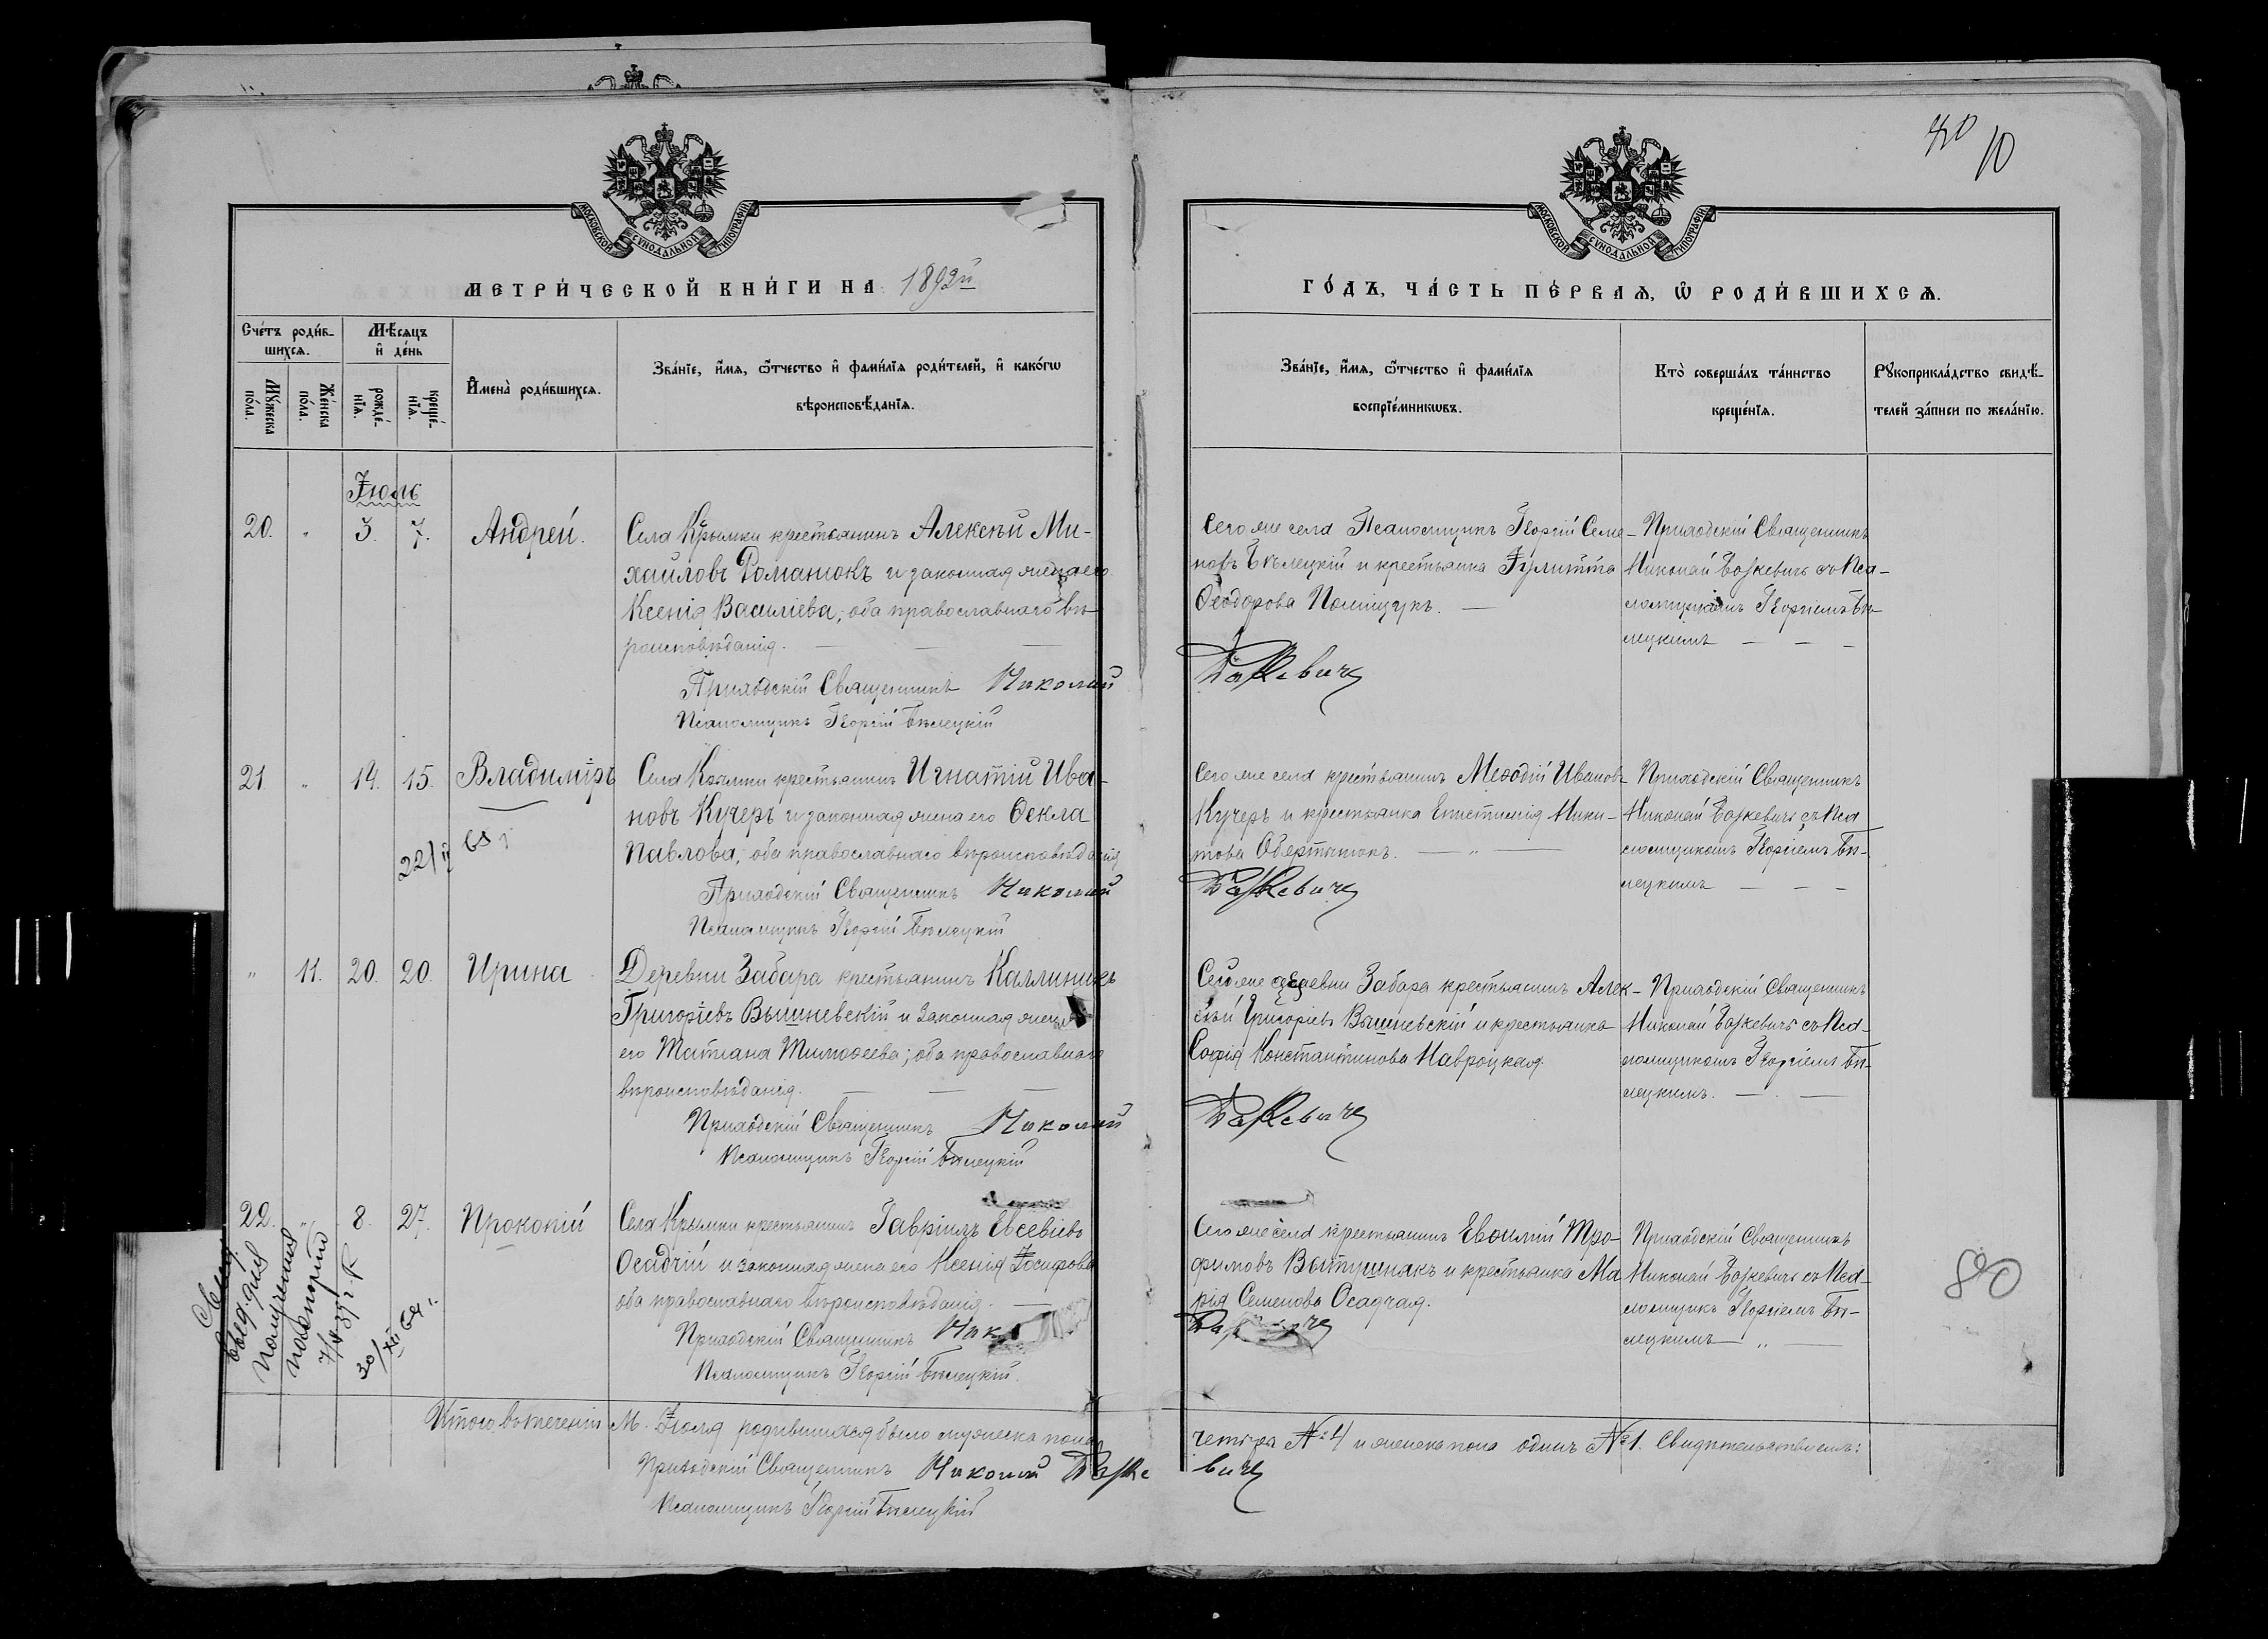 40 10
МОСКОВСКОЙ СѴНОДАЛЬНОЙ ТИПОГРАФІИ
МЕТРИ́ЧЕСКОЙ КНИ́ГИ НА 1892й
Сче́тъ роди́в-
шихсѧ.
Мѣ́сѧцъ
и҆ де́нь
Мꙋ́жеска
по́ла.
Же́нска
по́ла.
рожде́-
нїѧ.
креще́-
нїѧ.
И҆мена̀ роди́вшихсѧ.
Зва́нїе, и҆́мѧ, ѻ҆́тчество и҆ фами́лїѧ роди́телей, и҆ како́гѡ
вѣроисповѣ́данїѧ.
Іюль
20. " 3. 7. Андрей.
Села Крымки крестьянинъ Алексѣй Ми-
хаиловъ Романюкъ и законная жена его
Ксенія Василіева, оба православнаго вѣ-
роисповѣданія.
Приходскій Священникъ Николай
Псаломщикъ Георгій Бѣлецкій
21. " 14. 15. Владиміръ
Села Крымки крестьянинъ Игнатій Ива-
новъ Кучеръ и законная жена его Ѳекла
Павлова, оба православнаго вѣроисповѣданія
22/
Приходскій Священникъ Николай
Псаломщикъ Георгій Бѣлецкій
" 11. 20. 20. Ирина
Деревни Забара крестьянинъ Каллиникъ
Григоріевъ Вышневскій и законная жена
его Татіана Тимоѳеева; оба православнаго
вѣроисповѣданія.
Приходскій Священникъ Николай
Псаломщикъ Георгій Бѣлецкій
22. " 8. 27. Прокопій
Села Крымки крестьянинъ Гавріилъ Евсевіевъ
Осадчій и законная жена его Ксенія Іосифова
оба православнаго вѣроисповѣданія.
Приходскій Священникъ
Псаломщикъ Георгій Бѣлецкій.
для
получения
паспорта
Итого въ теченіи М. Іюля родившихся было мужеска пола
Приходскій Священникъ Николай Башке
Псаломщикъ Георгій Бѣлецкій
МОСКОВСКОЙ СѴНОДАЛЬНОЙ ТИПОГРАФІИ
ГО́ДЪ, ЧА́СТЬ ПЕ́РВАѦ, Ѡ҆ РОДИ́ВШИХСѦ.
Зва́нїе, и҆́мѧ, ѻ҆́тчество и҆ фами́лїѧ
воспрїе́мникѡвъ.
Кто̀ соверша́лъ та́инство
креще́нїѧ.
Рꙋкоприкла́дство свидѣ́-
телей за́писи по жела́нїю.
Сего же села Псаломщикъ Георгій Семе-
новъ Бѣлецкій и крестьянка Іулитта
Ѳеодорова Полищукъ.
Башкевичъ
Приходскій Священникъ
Николай Башкевичъ съ Пса-
ломщикомъ Георгіемъ Бѣ-
лецкимъ
Сего же села крестьянинъ Меѳодій Ивановъ
Кучеръ и крестьянка Епистимія Ники-
това Обертынюкъ.
Башкевичъ
Приходскій Священникъ
Николай Башкевичъ съ Пса
ломщикомъ Георгіемъ Бѣ-
лецкимъ
Сей же деревни Забара крестьянинъ Алек-
сѣй Григоріевъ Вышневскій и крестьянка
Софія Константинова Навроцкая.
Башкевичъ
Приходскій Священникъ
Николай Башкевичъ съ Пса-
ломщикомъ Георгіемъ Бѣ-
лецкимъ.
Сего же села крестьянинъ Евѳимій Тро-
фимовъ Вытушнякъ и крестьянка Ма
рія Семенова Осадчая.
Приходскій Священникъ
Николай Башкевичъ съ Пса-
ломщикъ Георгіемъ Бѣ-
лецкимъ
80
четыре № 4 и женска пола одинъ № 1. Свидѣтельствуемъ:
вичъ